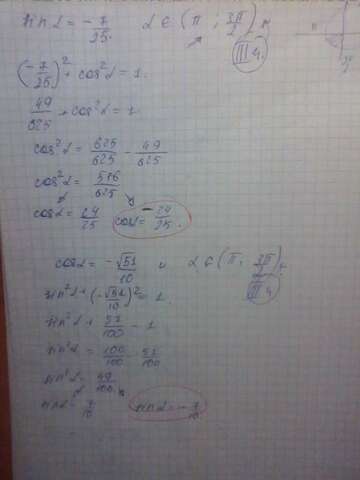 sin α = - 7/25. α ∈ (π ; 3π/2) и
III ч.
(-7/25)² + cos²α = 1.
49/625 + cos²α = 1
cos²α = 625/625 - 49/625
cos²α = 576/625
cosα = 24/25 cosα = - 24/25.
cosα = - √51/10 и α ∈ (π ; 3π/2) и
III ч
sin²α + (-√51/10)² = 1.
sin²α + 51/100 = 1
sin²α = 100/100 - 51/100
sin²α = 49/100
sinα = 7/10 sinα = - 7/10